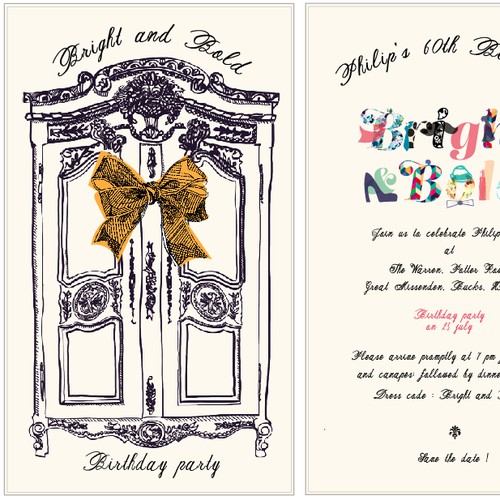 Bright and Bold
Birthday party
Philip's 60th
Bright
& Bold
Join us to celebrate Philip
at
The Warren,
Great Missenden, Bucks,
Birthday party
on 15 july
Please arrive promptly at 7 pm
and canapes followed by
Dress code : Bright and
Save the date !